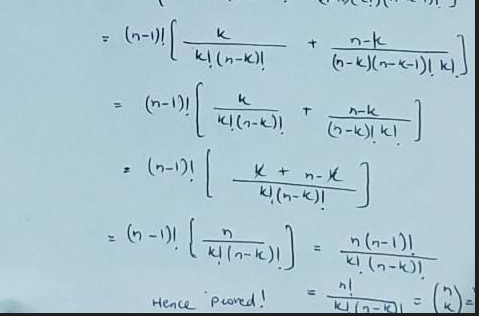 = (n-1)! [ k / k!(n-k)! + n-k / (n-k)(n-k-1)! k! ]
= (n-1)! [ k / k!(n-k)! + n-k / (n-k)! k! ]
= (n-1)! [ k + n-k / k!(n-k)! ]
= (n-1)! [ n / k!(n-k)! ] = n(n-1)! / k!(n-k)!
Hence proved! = n! / k!(n-k)! = (n k) =